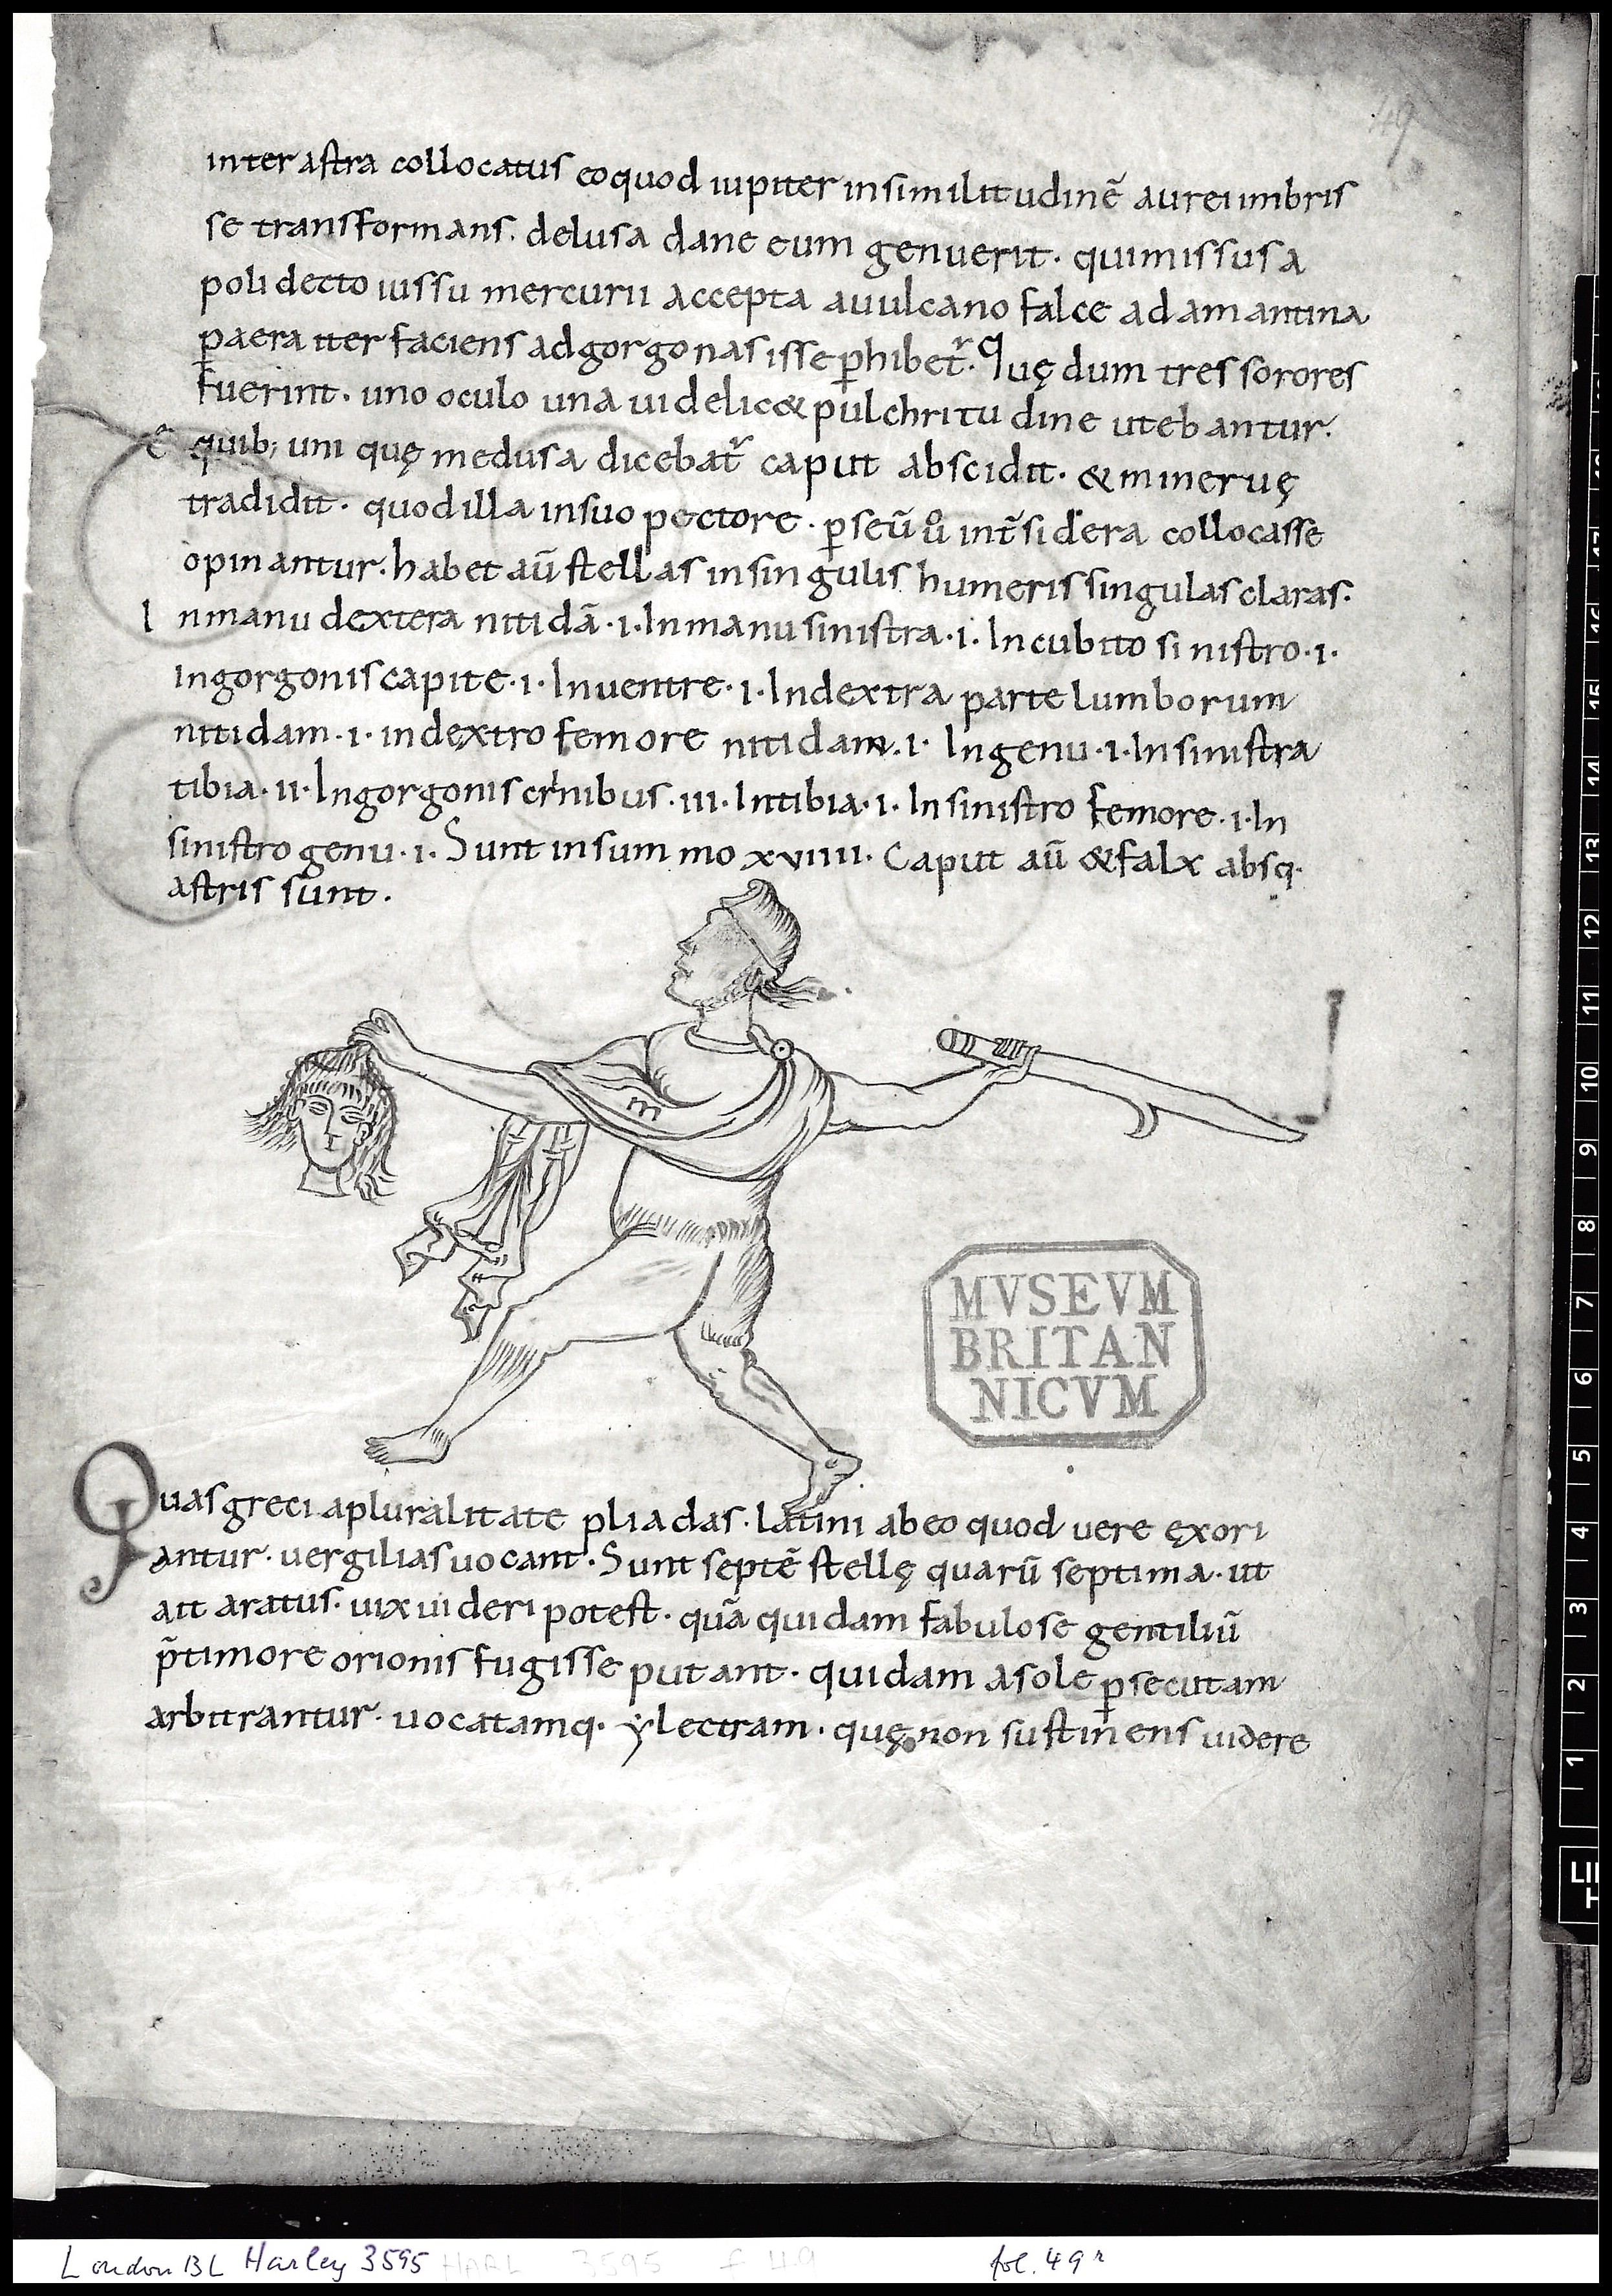 49
inter astra collocatus eo quod iupiter in similitudinē aurei imbris
se transformans. delusa dane eum genuerit. qui missus a
polidecto iussu mercurii accepta a uulcano falce adamantina
ꝑ aera iter faciens ad gorgonas isse ꝑhibet᷑. Quę dum tres sorores
fuerint. uno oculo una uidelic& pulchritudine utebantur.
e quib; uni quę medusa dicebat᷑ caput abscidit. & mineruę
tradidit. quod illa in suo pectore. ꝑseū ů int̄ sidera collocasse
opinantur. habet aū stellas in singulis humeris singulas claras.
In manu dextera nitidā .i. In manu sinistra .i. In cubito sinistro .i.
in gorgonis capite .i. In uentre .i. In dextra parte lumborum
nitidam .i. in dextro femore nitidam .i. In genu .i. In sinistra
tibia .ii. In gorgonis crinibus .iii. In tibia .i. In sinistro femore .i. In
sinistro genu .i. Sunt in summo xviiii. Caput aū & falx absq.
astris sunt.
MVSEVM
BRITAN
NICVM
Quas greci a pluralitate pliadas. latini ab eo quod uere ęxori
antur. uergilias uocant. Sunt septē stellę quarū septima. ut
ait aratus. uix uideri potest. quā quidam fabulose gentiliū
p̄ timore orionis fugisse putant. quidam a sole ꝑsecutam
arbitrantur. uocatamq. ẏlectram. quę non sustinens uidere
16
15
14
13
12
11
10
9
8
7
6
5
4
3
2
1
London BL Harley 3595 HARL 3595 f 49 fol. 49r